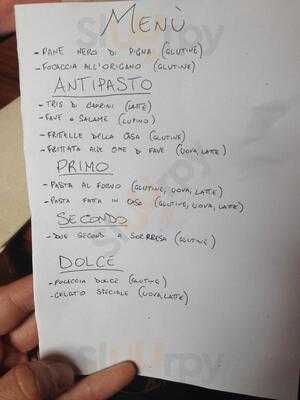 MENÙ
- PANE NERO DI PIGNA (GLUTINE)
- FOCACCIA ALL'ORIGANO (GLUTINE)
ANTIPASTO
- TRIS DI CAPRINI (LATTE)
- FAVE E SALAME (LUPINO)
- FRITELLE DELLA CASA (GLUTINE)
- FRITTATA ALLE CIME DI FAVE (UOVA, LATTE)
PRIMO
- PASTA AL FORNO (GLUTINE, UOVA, LATTE)
- PASTA FATTA IN CASA (GLUTINE, UOVA, LATTE)
SECONDO
- DUE SECONDI A SORPRESA (GLUTINE)
DOLCE
- FOCACCIA DOLCE (GLUTINE)
- GELATO SPECIALE (UOVA, LATTE)